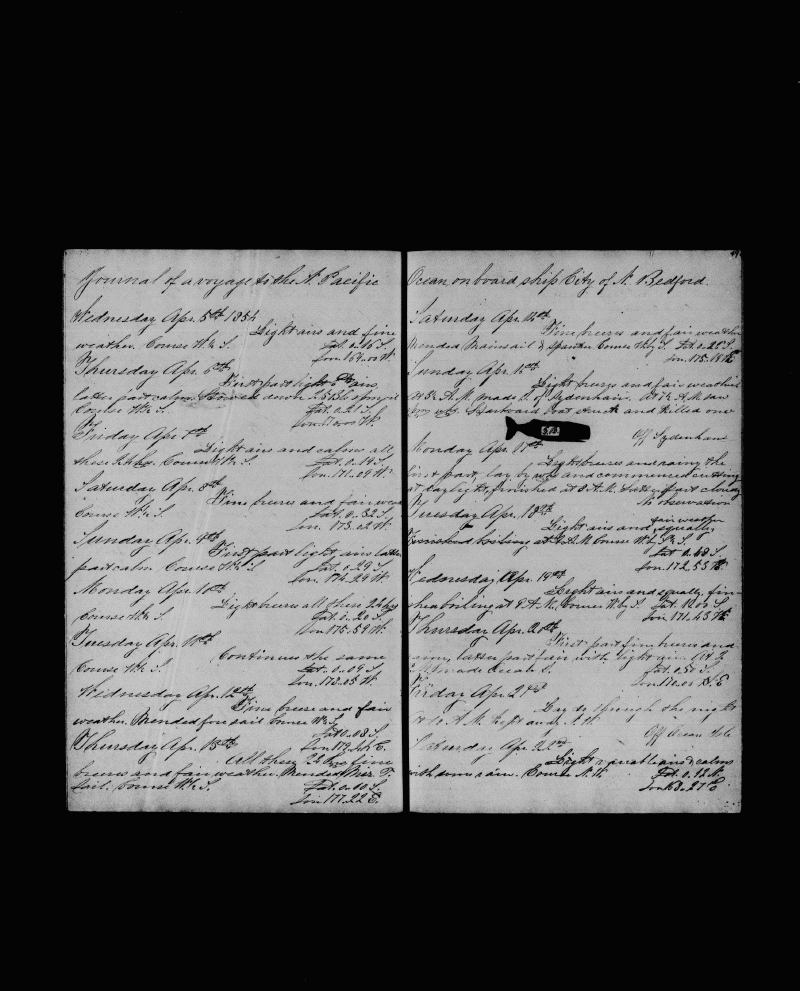 Journal of a voyage to the N. Pacific
Wednesday Apr. 5th 1854
Light airs and fine
weather. Course W. S. Lat. 0.16 S.
Lon. 169.00 W.
Thursday Apr. 6th
First part light airs,
latter part calm.
Course W. S. Lat. 0.21 S.
Friday Apr. 7th
Light airs and calms all
these 24 hrs. Course W. S. Lat. 0.19 S.
Lon. 171.09 W.
Saturday Apr. 8th
Fine breeze and fair weather
Course W. S. Lat. 0.32 S.
Lon. 173.02 W.
Sunday Apr. 9th
First part light airs latter
part calm. Course W. S. Lat. 0.29 S.
Lon. 174.29 W.
Monday Apr. 10th
Light breeze all these 24 hrs
Course W. S. Lat. 0.20 S.
Lon. 175.59 W.
Tuesday Apr. 11th
Continues the same
Course W. S. Lat. 0.09 S.
Wednesday Apr. 12th
Fine breeze and fair
weather. Mended fore sail Course W. S.
Lat. 0.08 S.
Thursday Apr. 13th
All these 24 hrs fine
breeze and fair weather. Mended Miz. T.
sail. Course W. S. Lat. 0.10 S.
Lon. 177.22 E.
Ocean on board ship City of N. Bedford.
Saturday Apr.
Fine breeze and fair weather
Mended Mainsail & Spanker Course W by S. Lat. 0.25 S.
Lon. 175.18 E
Sunday Apr.
Light breeze and fair weather
At A.M. made I. of Sydenham. At A.M. saw
Larboard boat struck and killed one
Off Sydenham
Monday Apr. 17th
Light breeze and rainy the
first part, lay by and commenced cutting
at daylight, finished at 8 A.M. Latter part cloudy
No observation
Tuesday Apr. 18th
Light airs and squally, fair weather
boiling at Course W by S.
Lat. 0.48 S.
Lon. 172.53
Wednesday Apr. 19th
Light airs and squally, fin-
ished boiling at 9 A.M. Course W by S. Lat.
Lon. 171.43
Thursday Apr. 20th
First part fine breeze and
rainy, latter part fair with light airs
made Ocean I. Lat. 0.50 S.
Lon. 170.00 E
Friday Apr. 21st
Lay to through the night
At 10 A.M. kept
Off Ocean Isle
Saturday Apr. 22nd
Light variable airs & calms
with some rain. Course N. W. Lat. 0.12 N.
Lon. 168.27 E